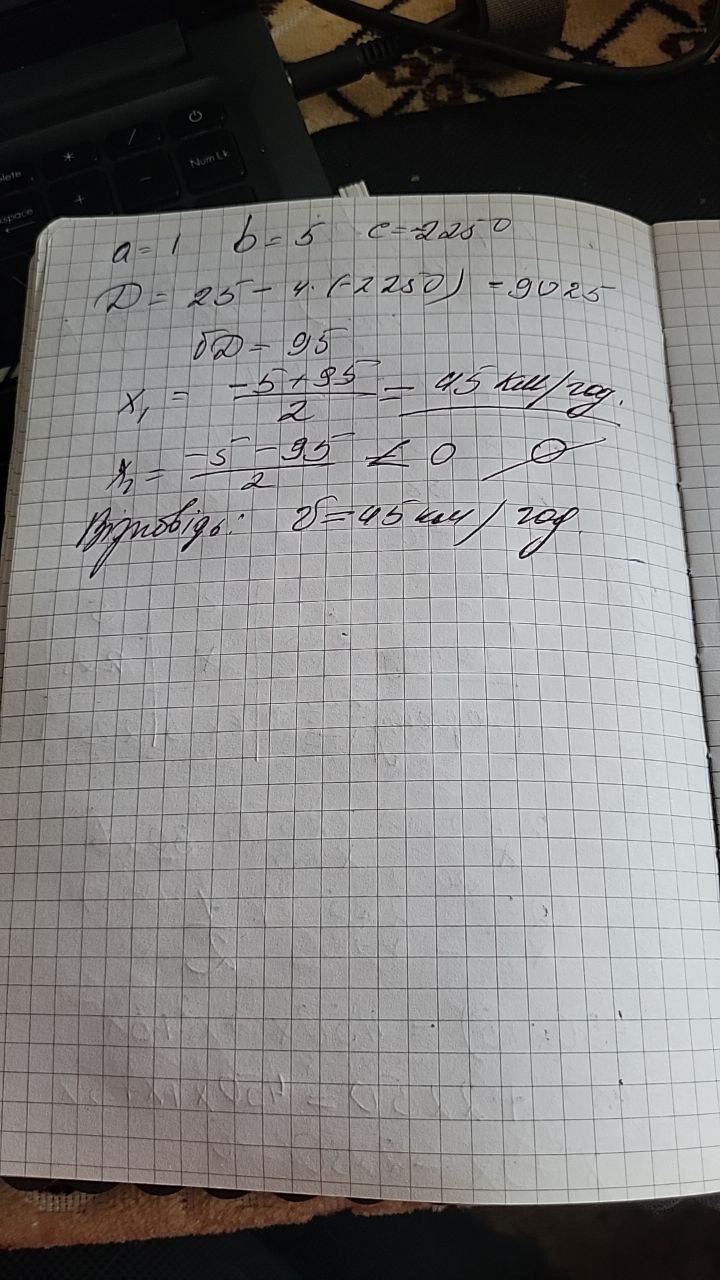 *
/
Num Lk
+
-
a = 1 b = 5 c = -2250
D = 25 - 4·(-2250) = 9025
√D = 95
x₁ = (-5+95)/2 = 45 км/год.
x₂ = (-5-95)/2 < 0 ∅
Відповідь: v = 45 км/год.